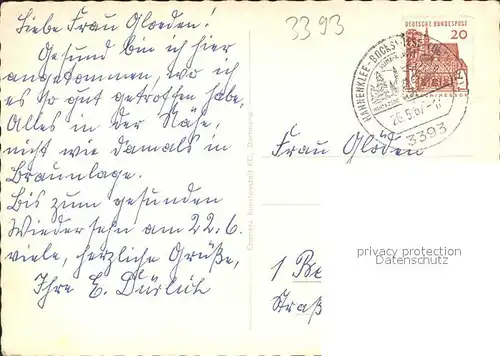 Liebe Frau Gloeden!
Gesund bin ich hier
angekommen, wo ich
es so gut getroffen habe.
Alles in der Nähe,
nicht wie damals in
Braunlage.
Bis zum gesunden
Wiedersehn am 22.6.
viele, herzliche Grüße,
Ihre E.
3393
DEUTSCHE BUNDESPOST
20
HAHNENKLEE-BOCKSWIESE
26.5.67
3393
Cramers Kunstanstalt KG., Dortmund
Frau Gloeden
privacy protection
Datenschutz
1 Be
Straß